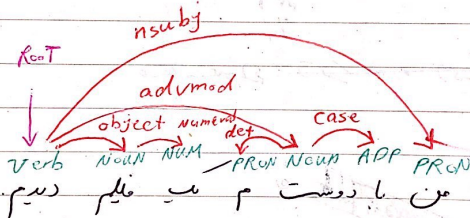 nsubj
RooT
advmod
object numeral det case
Verb NOUN NUM PRON NOUN ADP PRON
من با دوست م یک فیلم دیدم.